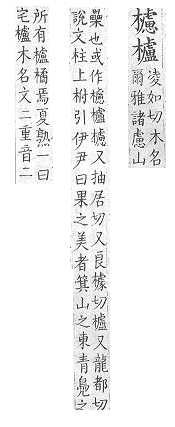 櫖櫨
凌如切木名
爾雅諸慮山
櫐也或作櫨櫖又抽居切又良據切櫨又龍都切
說文柱上枅引伊尹曰果之美者箕山之東青鳧之
所有櫨橘焉夏熟一曰
宅櫨木名文二重音二